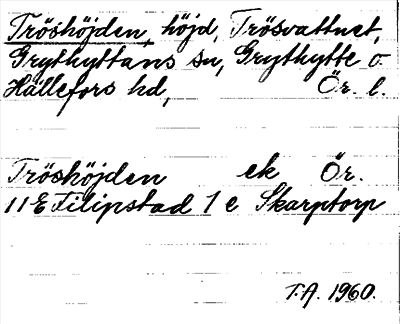 Tröshöjden, höjd, Trösvattnet,
Grythyttans sn, Grythytte o.
Hällefors hd, Ör. l.
Tröshöjden ek Ör.
11E Filipstad 1 e Skarptorp
T.A. 1960.